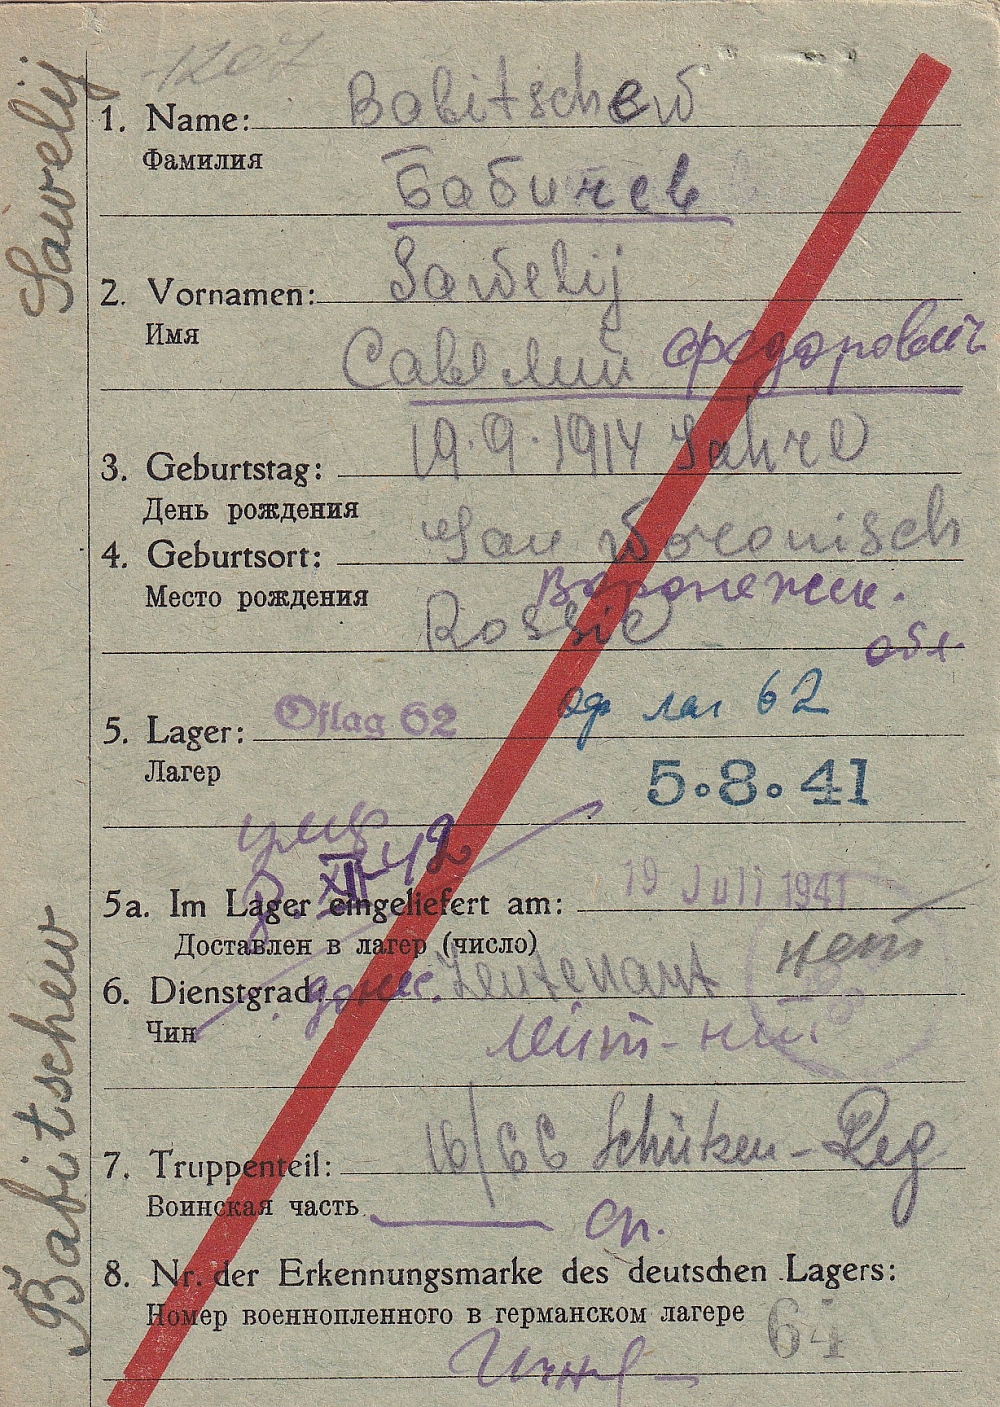 1207
Sawelij
Babitschew
1. Name: Babitschew
Фамилия
Бабичев
2. Vornamen: Sawelij
Имя
Савелий Федорович
3. Geburtstag: 19.9.1914 Jahre
День рождения
4. Geburtsort: Woronisch
Место рождения Воронежск.
Rossie обл.
5. Lager: Oflag 62 оф лаг 62
Лагер
5.8.41
XII-42
5a. Im Lager eingeliefert am: 19 Juli 1941
Доставлен в лагер (число) нет
6. Dienstgrad: Leutenant
Чин
7. Truppenteil: 16/66 Schützen-Reg
Воинская часть сп.
8. Nr. der Erkennungsmarke des deutschen Lagers:
Номер военнопленного в германском лагере 64